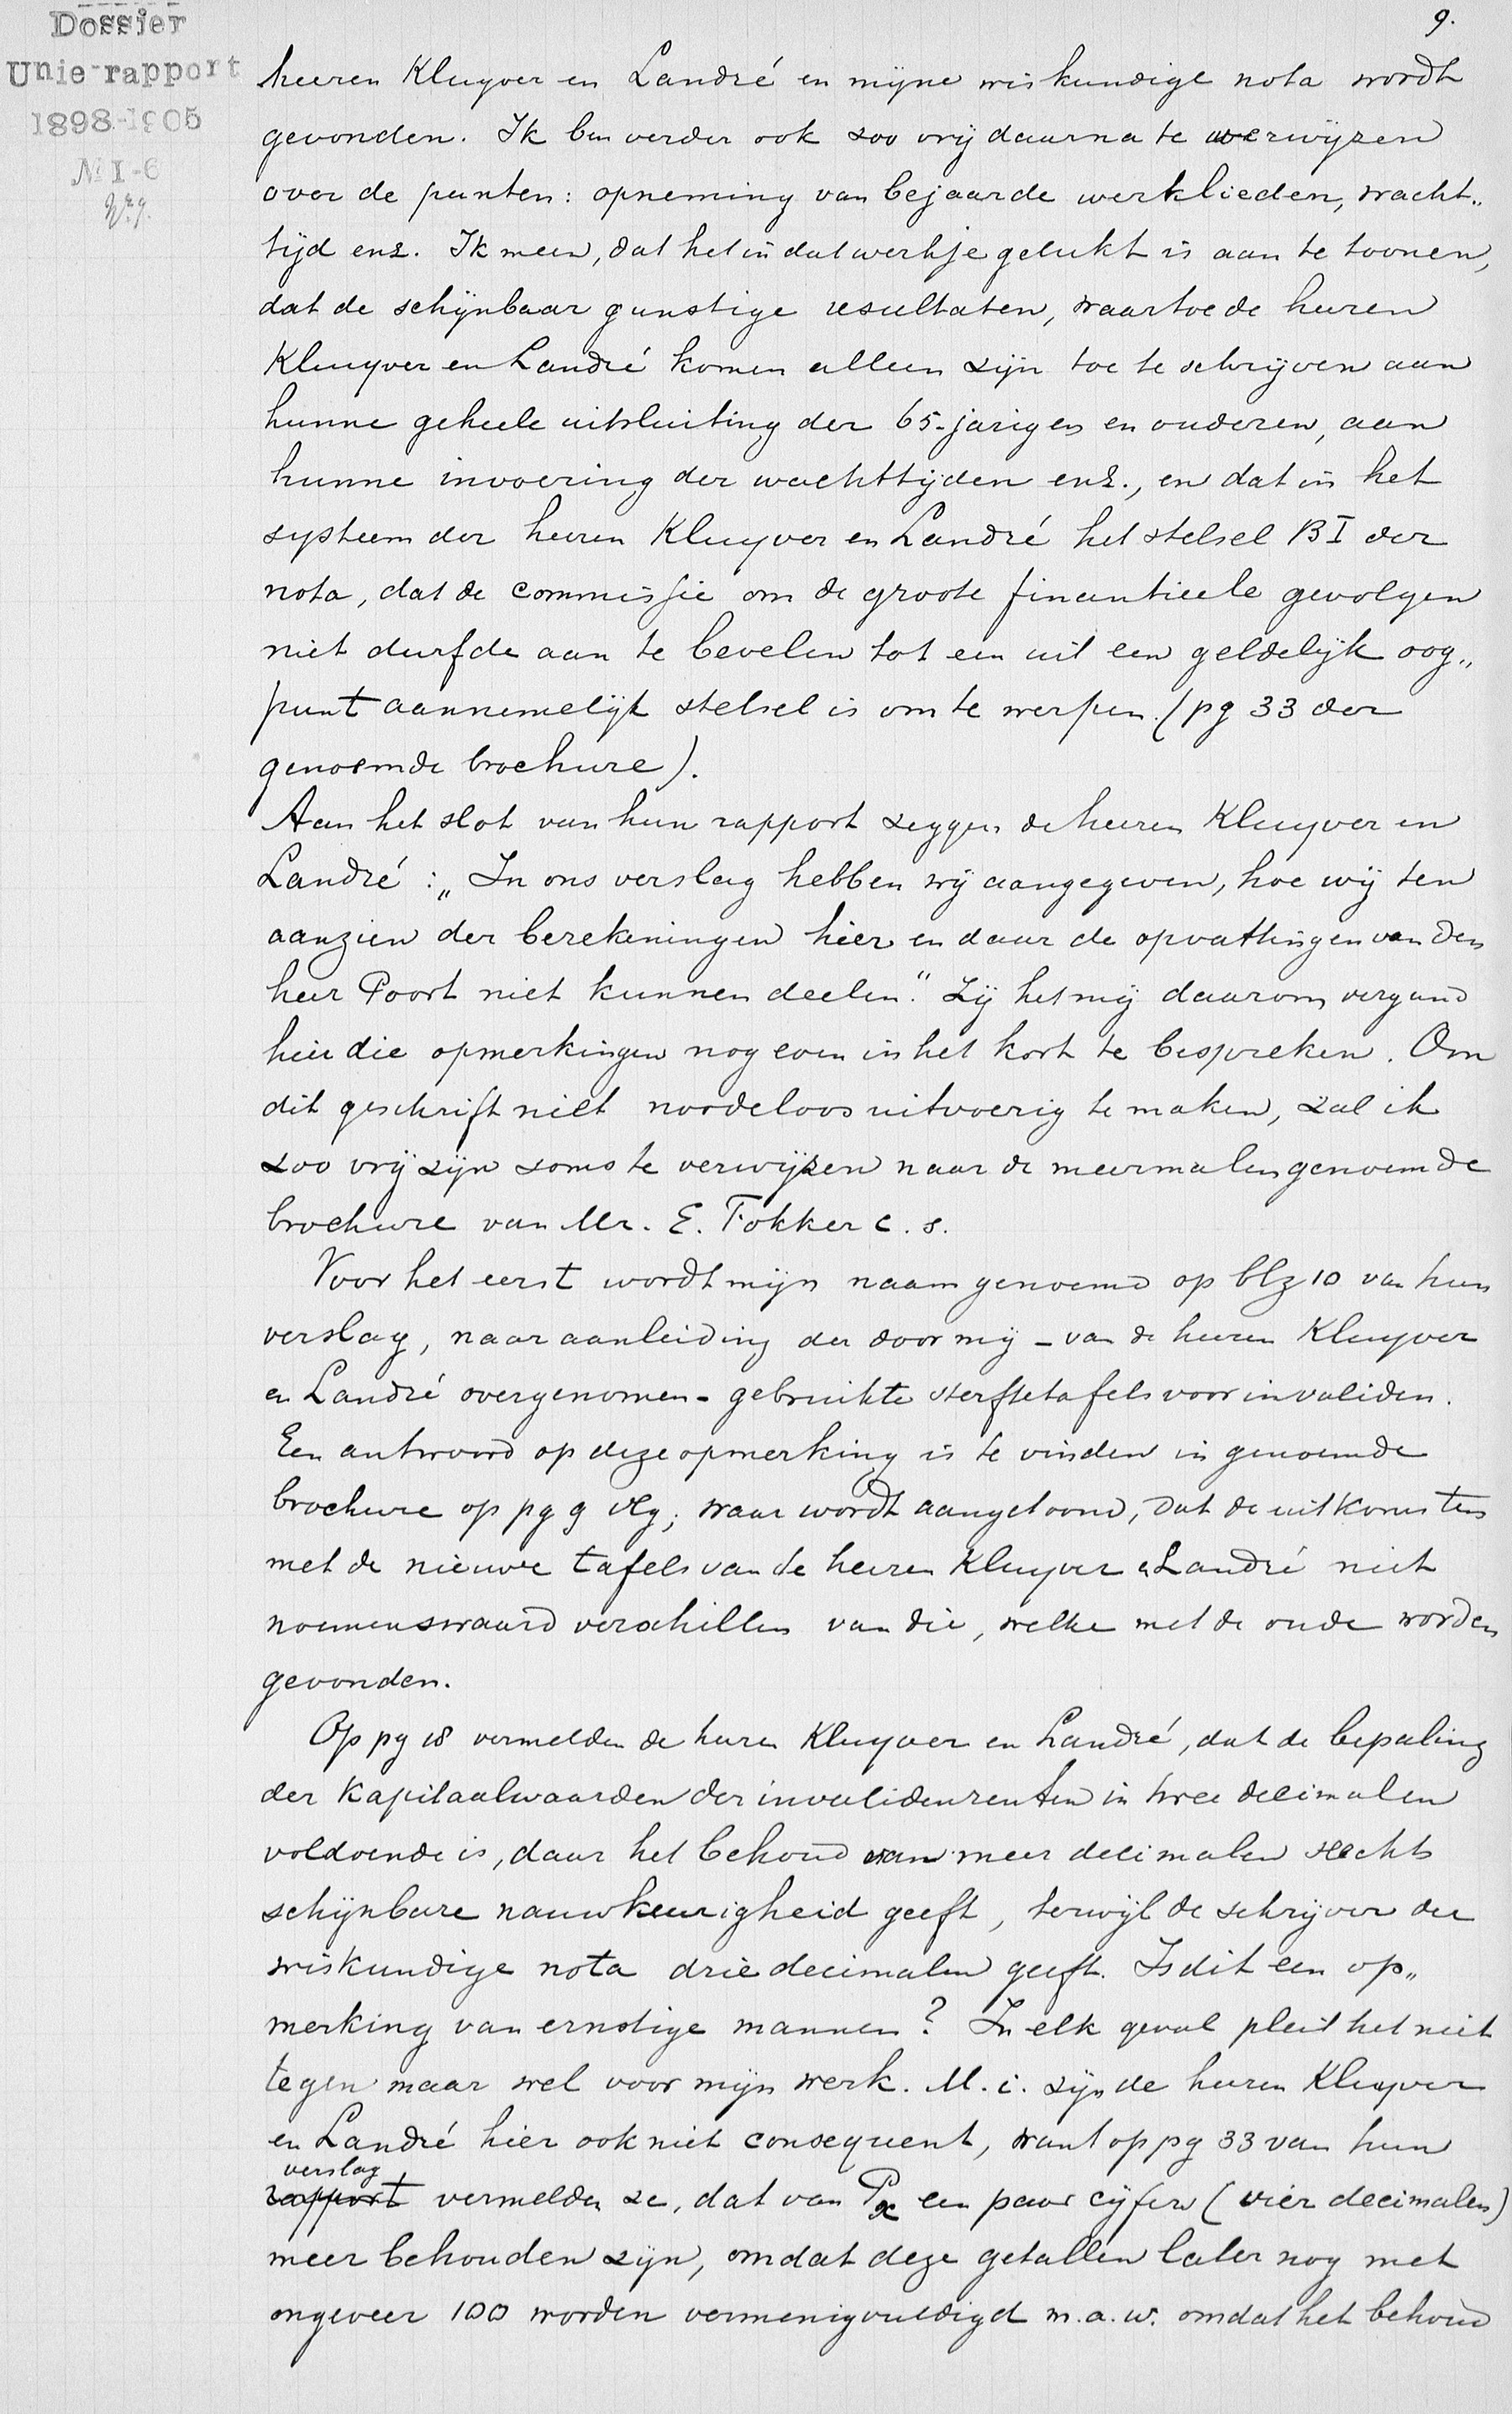 9.
Dossier
Unie-rapport
1898-1905
№ I-6
heeren Kluyver en Landré en mijne wiskundige nota wordt
gevonden. Ik ben verder ook zoo vrij daarna te verwijzen
over de punten: opneming van bejaarde werklieden, wacht„
tijd enz. Ik meen, dat het in dat werkje gelukt is aan te toonen,
dat de schijnbaar gunstige resultaten, waartoe de heeren
Kluyver en Landré komen alleen zijn toe te schrijven aan
hunne geheele uitsluiting der 65-jarigen en ouderen, aan
hunne invoering der wachttijden enz., en dat in het
systeem der heeren Kluyver en Landré het stelsel B I der
nota, dat de commissie om de groote finantieele gevolgen
niet durfde aan te bevelen tot een uit een geldelijk oog„
punt aannemelijk stelsel is om te werpen. (pg 33 der
genoemde brochure).
Aan het slot van hun rapport zeggen de heeren Kluyver en
Landré: „In ons verslag hebben wij aangegeven, hoe wij ten
aanzien der berekeningen hier en daar de opvattingen van den
heer Poort niet kunnen deelen." Zij het mij daarom vergund
hier die opmerkingen nog even in het kort te bespreken. Om
dit geschrift niet noodeloos uitvoerig te maken, zal ik
zoo vrij zijn soms te verwijzen naar de meermalen genoemde
brochure van Mr. E. Fokker c.s.
Voor het eerst wordt mijn naam genoemd op blz 10 van hun
verslag, naar aanleiding der door mij - van de heeren Kluyver
en Landré overgenomen - gebruikte sterftetafels voor invaliden.
Een antwoord op deze opmerking is te vinden in genoemde
brochure op pg 9 vlg; waar wordt aangetoond, dat de uitkomsten
met de nieuwe tafels van de heeren Kluyver en Landré niet
noemenswaard verschillen van die, welke met de oude worden
gevonden.
Op pg 18 vermelden de heeren Kluyver en Landré, dat de bepaling
der kapitaalwaarden der invalidenrenten in twee decimalen
voldoende is, daar het behoud van meer decimalen slechts
schijnbare nauwkeurigheid geeft, terwijl de schrijver der
wiskundige nota drie decimalen geeft. Is dit een op„
merking van ernstige mannen? In elk geval pleit het niet
tegen maar wel voor mijn werk. M.i. zijn de heeren Kluyver
en Landré hier ook niet consequent, want op pg 33 van hun
verslag
rapport vermelden ze, dat van Px een paar cijfers (vier decimalen)
meer behouden zijn, omdat deze getallen later nog met
ongeveer 100 worden vermenigvuldigd m.a.w. omdat het behoud